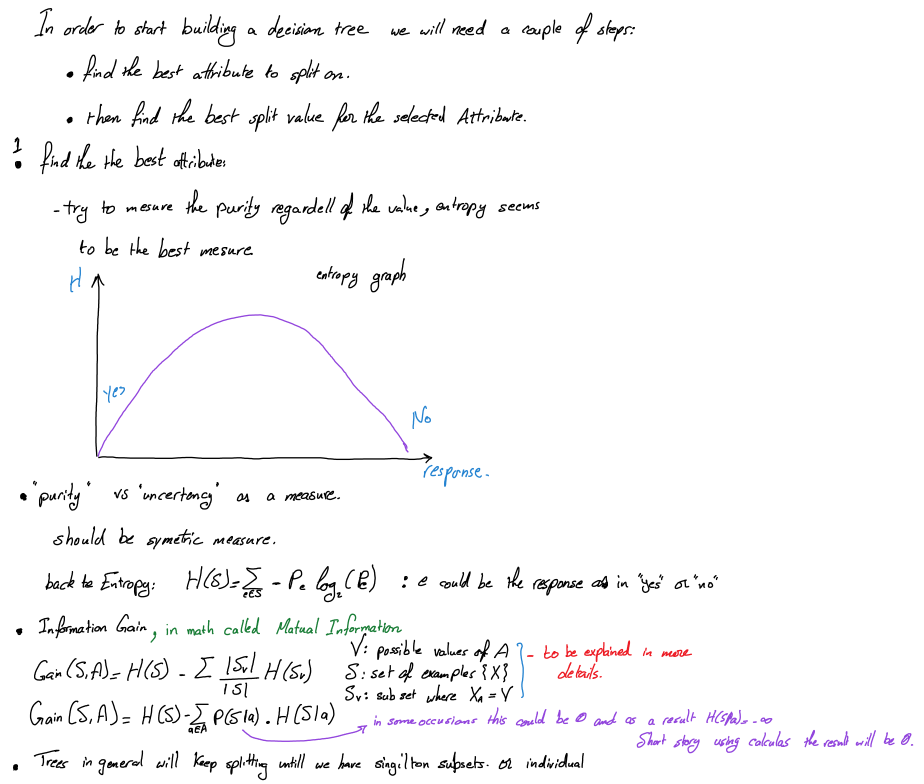 In order to start building a decision tree we will need a couple of steps:
• find the best attribute to split on.
• then find the best split value for the selected Attribute.
1
• find the the best attribute:
- try to mesure the purity regardell of the value, entropy seems
to be the best mesure
H
entropy graph
Yes
No
response.
• "purity" vs "uncertancy" as a measure.
should be symetric measure.
back to Entropy: H(S)=∑e∈S - Pe log2(Pe) : e could be the response as in "yes" or "no"
• Information Gain, in math called Matual Information
Gain(S,A)= H(S) - ∑ |Sv|/|S| H(Sv)
V: possible values of A
S: set of examples {X}
Sv: sub set where XA = V
- to be explained in more
details.
Gain(S,A)= H(S)-∑a∈A P(S|a) . H(S|a)
in some occusions this could be 0 and as a result H(S|a)=-∞
Short story using calculas the result will be 0.
• Trees in general will keep splitting untill we have singilton subsets. or individual